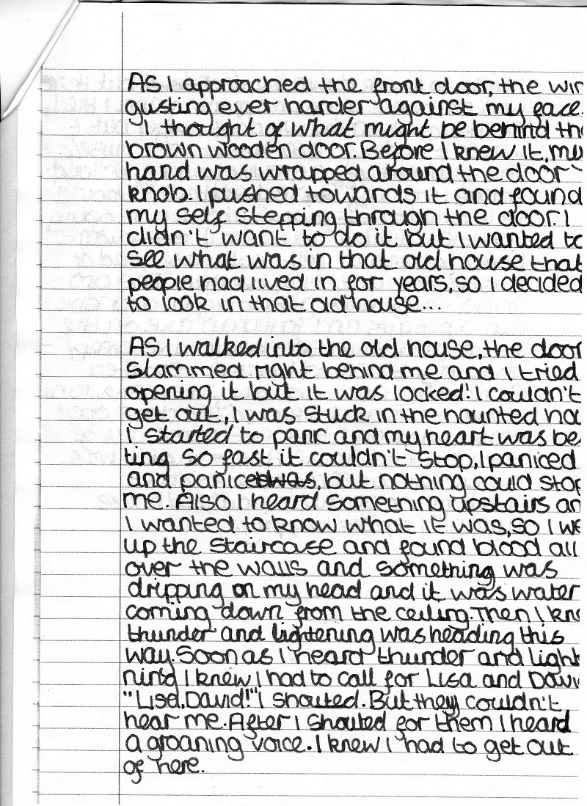 As I approached the front door, the win
gusting ever harder against my face.
I thought of what might be behind th
brown wooden door. Before I knew it, my
hand was wrapped around the door
knob. I pushed towards it and found
my self stepping through the door. I
didn't want to do it but I wanted to
see what was in that old house that
people had lived in for years, so I decided
to look in that old house...
As I walked into the old house, the door
slammed right behind me and I tried
opening it but it was locked! I couldn't
get out, I was stuck in the haunted ho
I started to panic and my heart was be
ting so fast it couldn't stop, I paniced
and paniced was, but nothing could stop
me. Also I heard something upstairs an
I wanted to know what it was, so I we
up the staircase and found blood all
over the walls and something was
dripping on my head and it was water
coming down from the ceiling. Then I kn
thunder and lightening was heading this
way. Soon as I heard thunder and light
ning I knew I had to call for Lisa and Davi
"Lisa, David!" I shouted. But they couldn't
hear me. After I shouted for them I heard
a groaning voice. I knew I had to get out
of here.